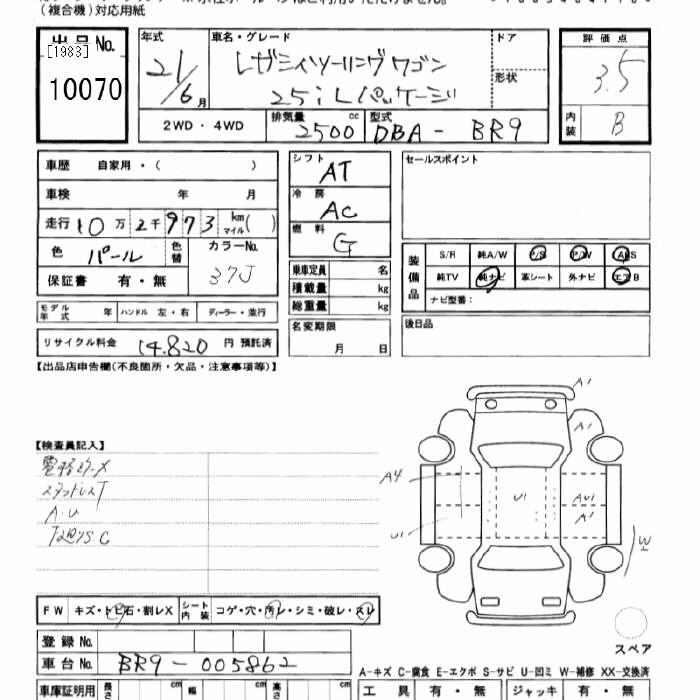 (複合機)対応用紙
出品No.
[1983]
10070
年式 車名・グレード ドア 評価点
21/6月 レガシィツーリングワゴン 3.5
25iLパッケージ 形状
2WD・4WD 排気量 cc 2500 型式 DBA- BR9 内装 B
車歴 自家用・( )
シフト AT セールスポイント
車検 年 月
冷房 AC
走行 10万2千973 km マイル( )
燃料 G
色 パール 色替 カラーNo. 37J
装備品 S/R 純A/W P/S P/W ABS
保証書 有・無
乗車定員 名
純TV 純ナビ 革シート 外ナビ エアB
積載量 kg
ナビ型番:
総重量 kg
モデル年式 年 ハンドル 左・右 ディーラー・並行
名変期限 月 日
後日品
リサイクル料金 14.820 円 預託済
【出品店申告欄(不良箇所・欠品・注意事項等)】
A1
A1
【検査員記入】
A4
U1
AU1
A1
U1
W
スタッドレスT
A.U
FW キズ・トビ石・割レX シート内装 コゲ・穴・汚レ・シミ・破レ・スレ
スペア
登録No.
車台No. BR9-005862
A-キズ C-腐食 E-エクボ S-サビ U-凹ミ W-補修 XX-交換済
車庫証明用 長さ cm 幅 cm 高さ cm
工具 有・無 ジャッキ 有・無